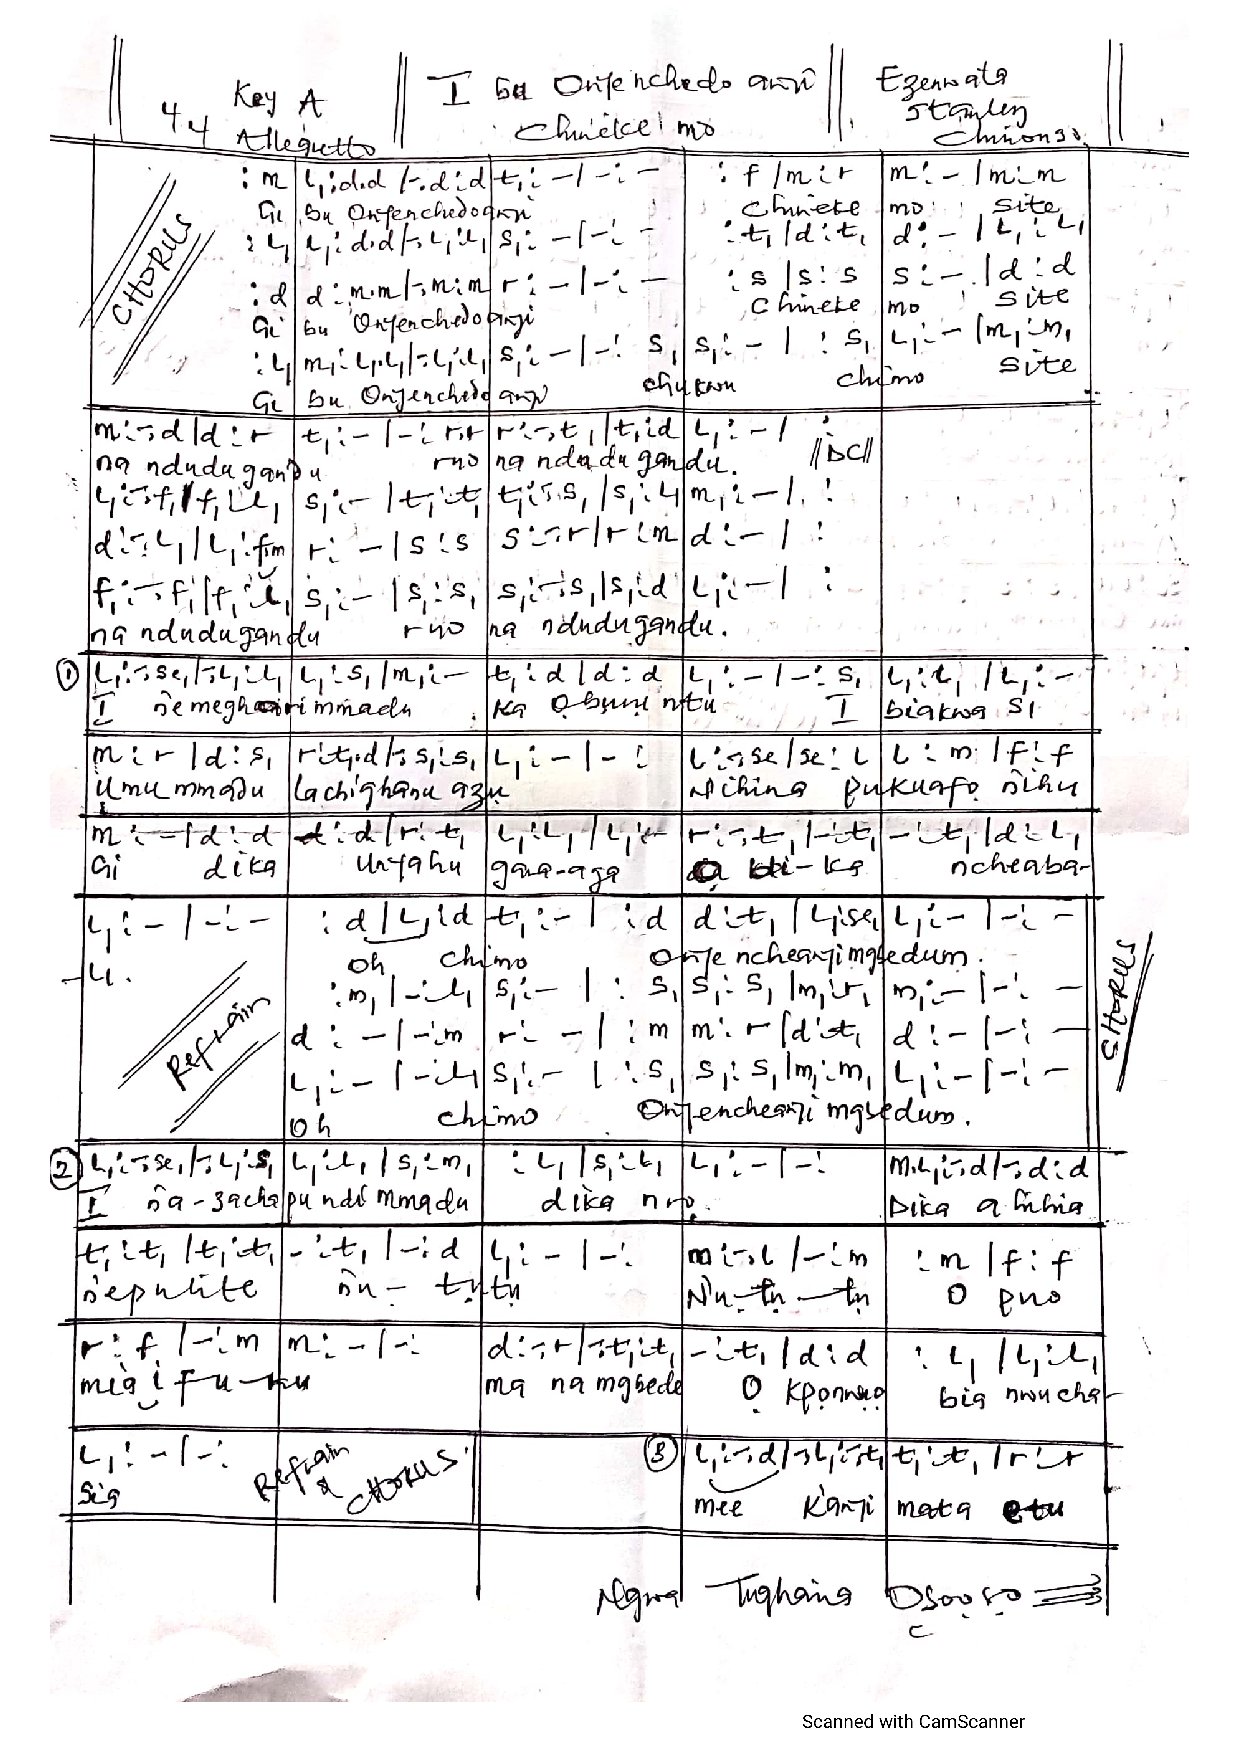 Key A
4.4
Allegretto
I bu Onyenchedo anyi
Chineke mo
Ezenwata
Stanley
Chinonso.
CHORUS
: m | l₁ : d.d /-. d : d | t₁ : - / - : - | : f / m : r | m : - / m : m
Gi bu Onyenchedo anyi Chineke mo site
: l₁ | l₁ : d.d /-. l₁ : l₁ | s₁ : - / - : - | : t₁ / d : t₁ | d : - / l₁ : l₁
: d | d : m.m /-. m : m | r : - / - : - | : s / s : s | s : - / d : d
Gi bu Onyenchedo anyi Chineke mo site
: l₁ | m₁ : l₁.l₁ /-. l₁ : l₁ | s₁ : - / - : s₁ | s₁ : - / : s₁ | l₁ : - / m₁ : m₁
Gi bu Onyenchedo anyi chukwu chimo site
m : -. d / d : r | t₁ : - / - : r.r | r : -. t₁ / t₁ : d | l₁ : - / : //DC//
na ndudugandu ruo na ndudugandu.
l₁ : -. f₁ / f₁ : l₁ | s₁ : - / t₁ : t₁ | t₁ : -. s₁ / s₁ : l₁ | m₁ : - / :
d : -. l₁ / l₁ : fm | r : - / s : s | s : -. r / r : m | d : - / :
f₁ : -. f₁ / f₁ : l₁ | s₁ : - / s₁ : s₁ | s₁ : -. s₁ / s₁ : d | l₁ : - / :
na ndudugandu ruo na ndudugandu.
① l₁ : -. se₁ /-. l₁ : l₁ | l₁ : s₁ / m₁ : - | t₁ : d / d : d | l₁ : - / - : s₁ | l₁ : l₁ / l₁ : -
I ñemeghari mmadu ka Ọbụrụ ntu I biakwa si
m : r / d : s₁ | r : t₁.d /-. s₁ : s₁ | l₁ : - / - : | l : -. se / se : l | l : m / f : f
Umu mmadu lachighanu azụ Nihina pukuafọ ñihu
m : - / d : d | d : d / r : t₁ | l₁ : l₁ / l₁ : - | r : -. t₁ / - : t₁ | - : t₁ / d : l₁
Gi dika unyahu gara-aga ka ncheaba-
l₁ : - / - : - | : d / l₁ : d | t₁ : - / : d | d : t₁ / l₁ : se₁ | l₁ : - / - : -
Oh chimo Onye ncheanyi mgbedum.
: m₁ / - : l₁ | s₁ : - / : s₁ | s₁ : s₁ / m₁ : r₁ | m₁ : - / - : -
Refrain
d : - / - : m | r : - / : m | m : r / d : t₁ | d : - / - : -
l₁ : - / - : l₁ | s₁ : - / : s₁ | s₁ : s₁ / m₁ : m₁ | l₁ : - / - : -
Oh chimo Onyencheanyi mgbedum.
SHORUS
② l₁ : -. se₁ /-. l₁ : s₁ | l₁ : l₁ / s₁ : m₁ | : l₁ / s₁ : l₁ | l₁ : - / - : | m.l₁ : -. d /-. d : d
I ña-zachapu ndi mmadu dika nrọ. Dika ahihia
t₁ : t₁ / t₁ : t₁ | - : t₁ / - : d | l₁ : - / - : | m : -. l / - : m | : m / f : f
ñepulite ñu- tụtụ Ñụ-tụ-tụ O puo
r : f / - : m | m : - / - : | d : -. r /-. t₁ : t₁ | - : t₁ / d : d | : l₁ / l₁ : l₁
mia i fu-ru ma na mgbede Ọ kpọnwụọ bia nwucha-
l₁ : - / - :
sia
Refrain & CHORUS
③ l₁ : -. d /-. l₁ : t₁ | t₁ : t₁ / r : r
mee Kanyi mata etu
Ngwa Tughaina Osooso
Scanned with CamScanner